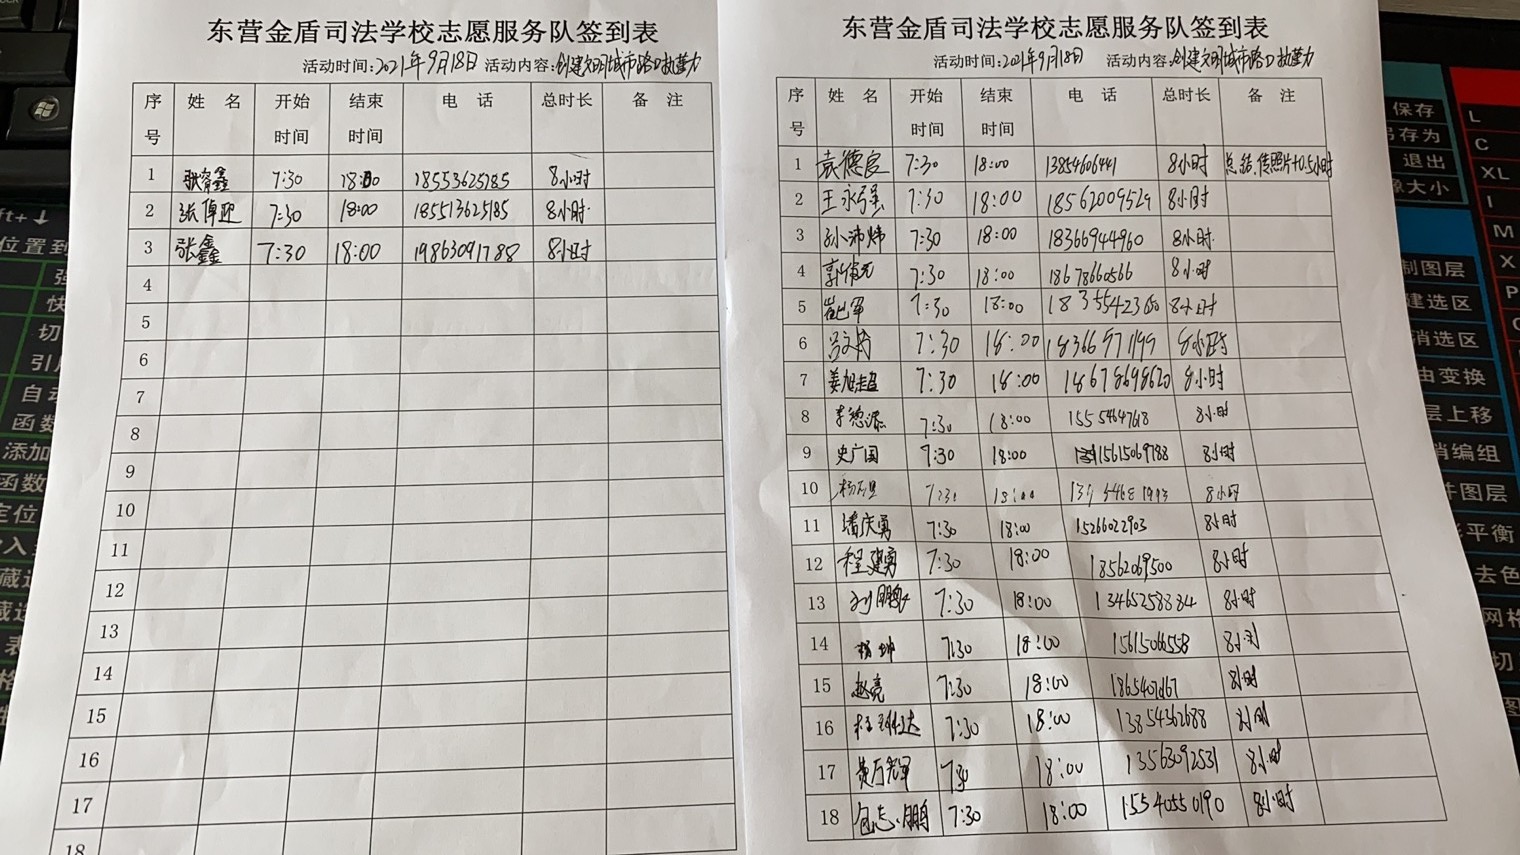 东营金盾司法学校志愿服务队签到表
活动时间:2021年9月18日 活动内容:创建文明城市路口执勤
序号 姓 名 开始时间 结束时间 电 话 总时长 备 注
1 张睿鑫 7:30 18:00 18553625185 8小时
2 张倬 7:30 18:00 185513625185 8小时
3 张鑫 7:30 18:00 19863091788 8小时
4
5
6
7
8
9
10
11
12
13
14
15
16
17
18
东营金盾司法学校志愿服务队签到表
活动时间:2021年9月18日 活动内容:创建文明城市路口执勤
序号 姓 名 开始时间 结束时间 电 话 总时长 备 注
1 袁德良 7:30 18:00 13854606441 8小时 总结,传照片+0.5小时
2 王永强 7:30 18:00 18562009529 8小时
3 孙沛炜 7:30 18:00 18366944960 8小时
4 7:30 18:00 18678660566 8小时
5 崔 军 7:30 18:00 8小时
6 吕文 7:30 18:00 8小时
7 姜旭超 7:30 18:00 18678698620 8小时
8 李 7:30 18:00 15554647618 8小时
9 史广国 7:30 18:00 15615069788 8小时
10 杨 7:30 18:00 8小时
11 潘庆勇 7:30 18:00 15266022903 8小时
12 程建勇 7:30 18:00 18562069500 8小时
13 刘鹏 7:30 18:00 13465258884 8小时
14 杨坤 7:30 18:00 15615066558 8小时
15 赵亮 7:30 18:00 8小时
16 7:30 18:00 13854362688 8小时
17 黄 军 7:30 18:00 13563092531 8小时
18 包志鹏 7:30 18:00 15540550190 8小时
保存
另存为
退出
像大小
建选区
消选区
由变换
层上移
消编组
并图层
平衡
去色
网格
位置到
切
引用
自动
函数
添加
函数
L
C
XL
I
M
X